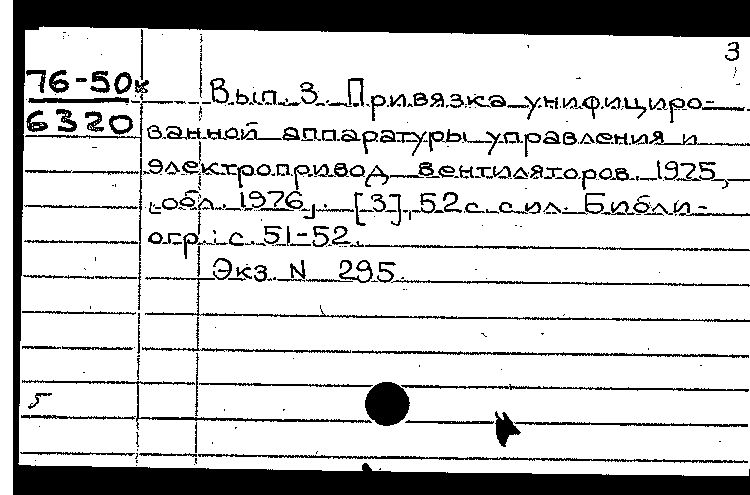 3
76-50к
6320
Вып. 3. Привязка унифициро-
ванной аппаратуры управления и
электропривод вентиляторов. 1975,
[обл. 1976]. [3], 52 с. с ил. Библи-
огр.: с. 51-52.
Экз. N 295.
5